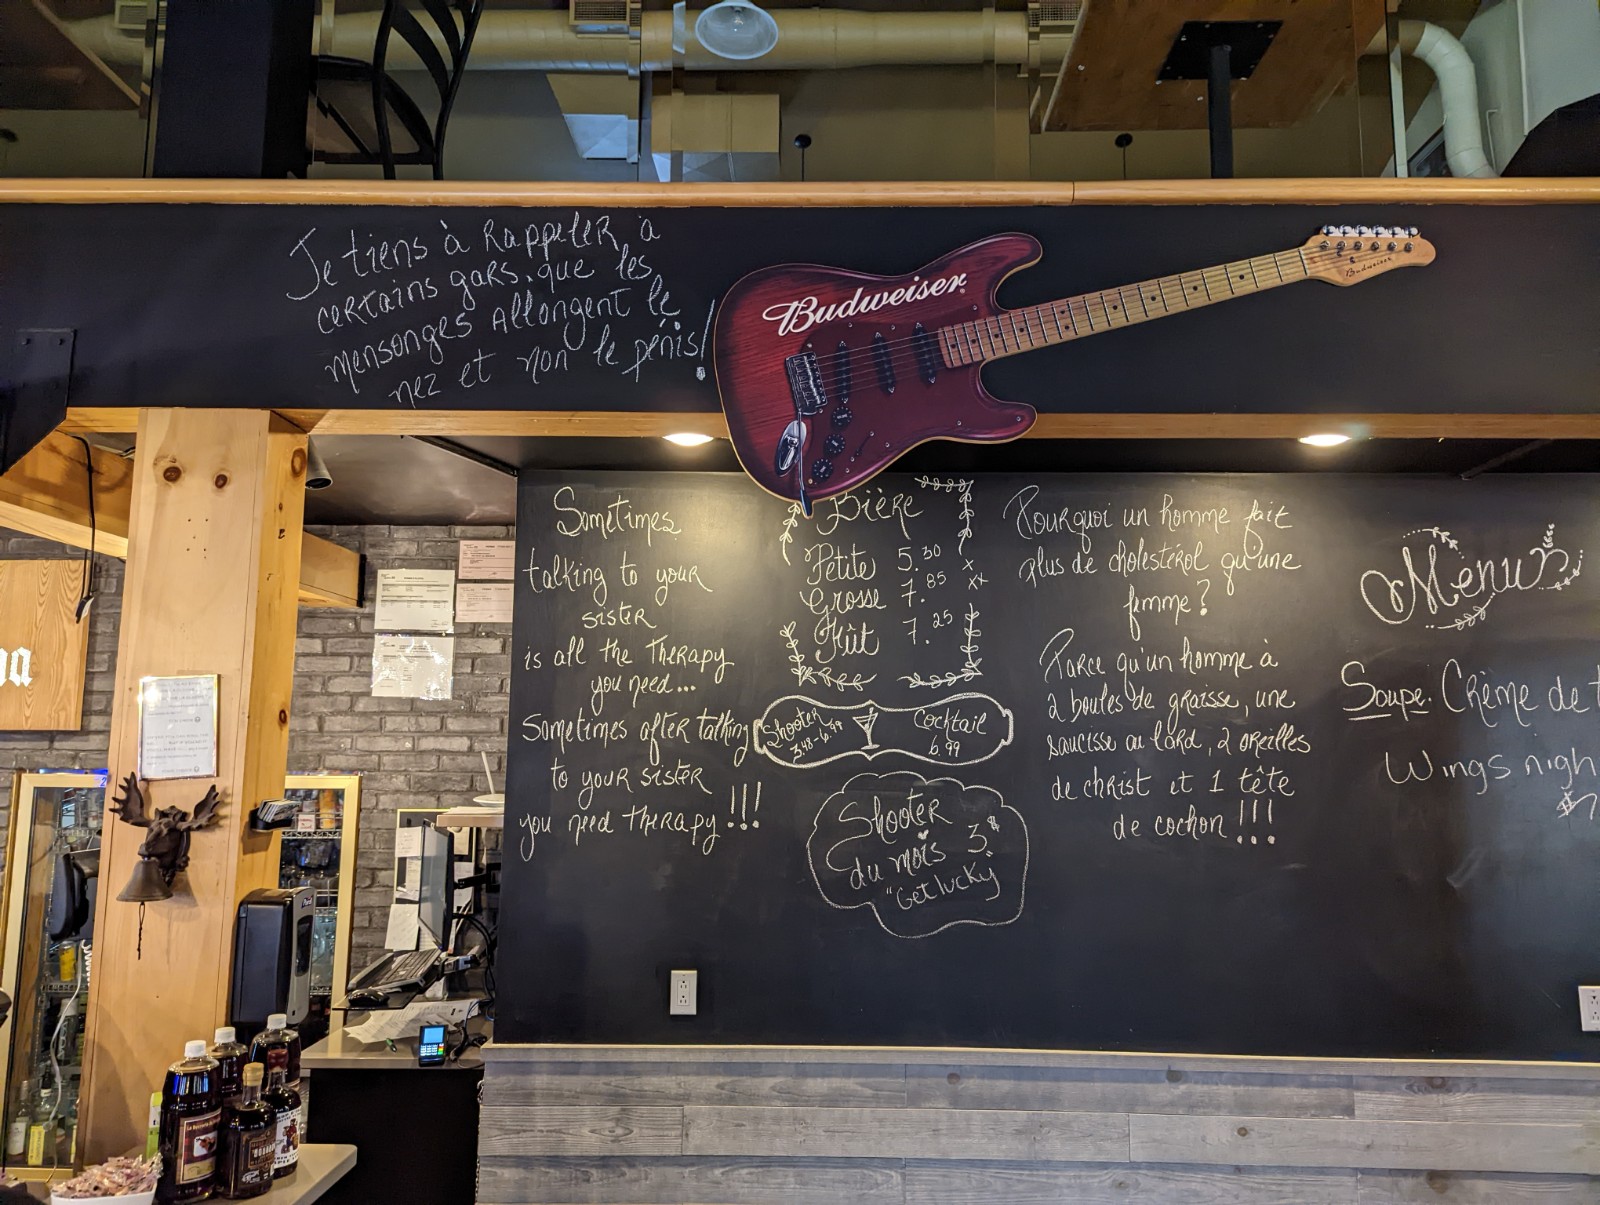 Je tiens à Rappeler à
certains gars, que les
mensonges Allongent le
nez et non le pénis!
Budweiser
Budweiser
Sometimes
talking to your
sister
is all the Therapy
you need...
Sometimes after talking
to your sister
you need Therapy !!!
Bière
Petite 5.30 x
Grosse 7.85 xx
Fût 7.25
Shooter
3.48-6.99
Cocktail
6.99
Shooter
du mois 3.$
"Get lucky"
Pourquoi un homme fait
plus de cholestérol qu'une
femme?
Parce qu'un homme à
2 boules de graisse, une
saucisse au lard, 2 oreilles
de christ et 1 tête
de cochon !!!
Menu
Soupe. Crème de t
Wings nigh